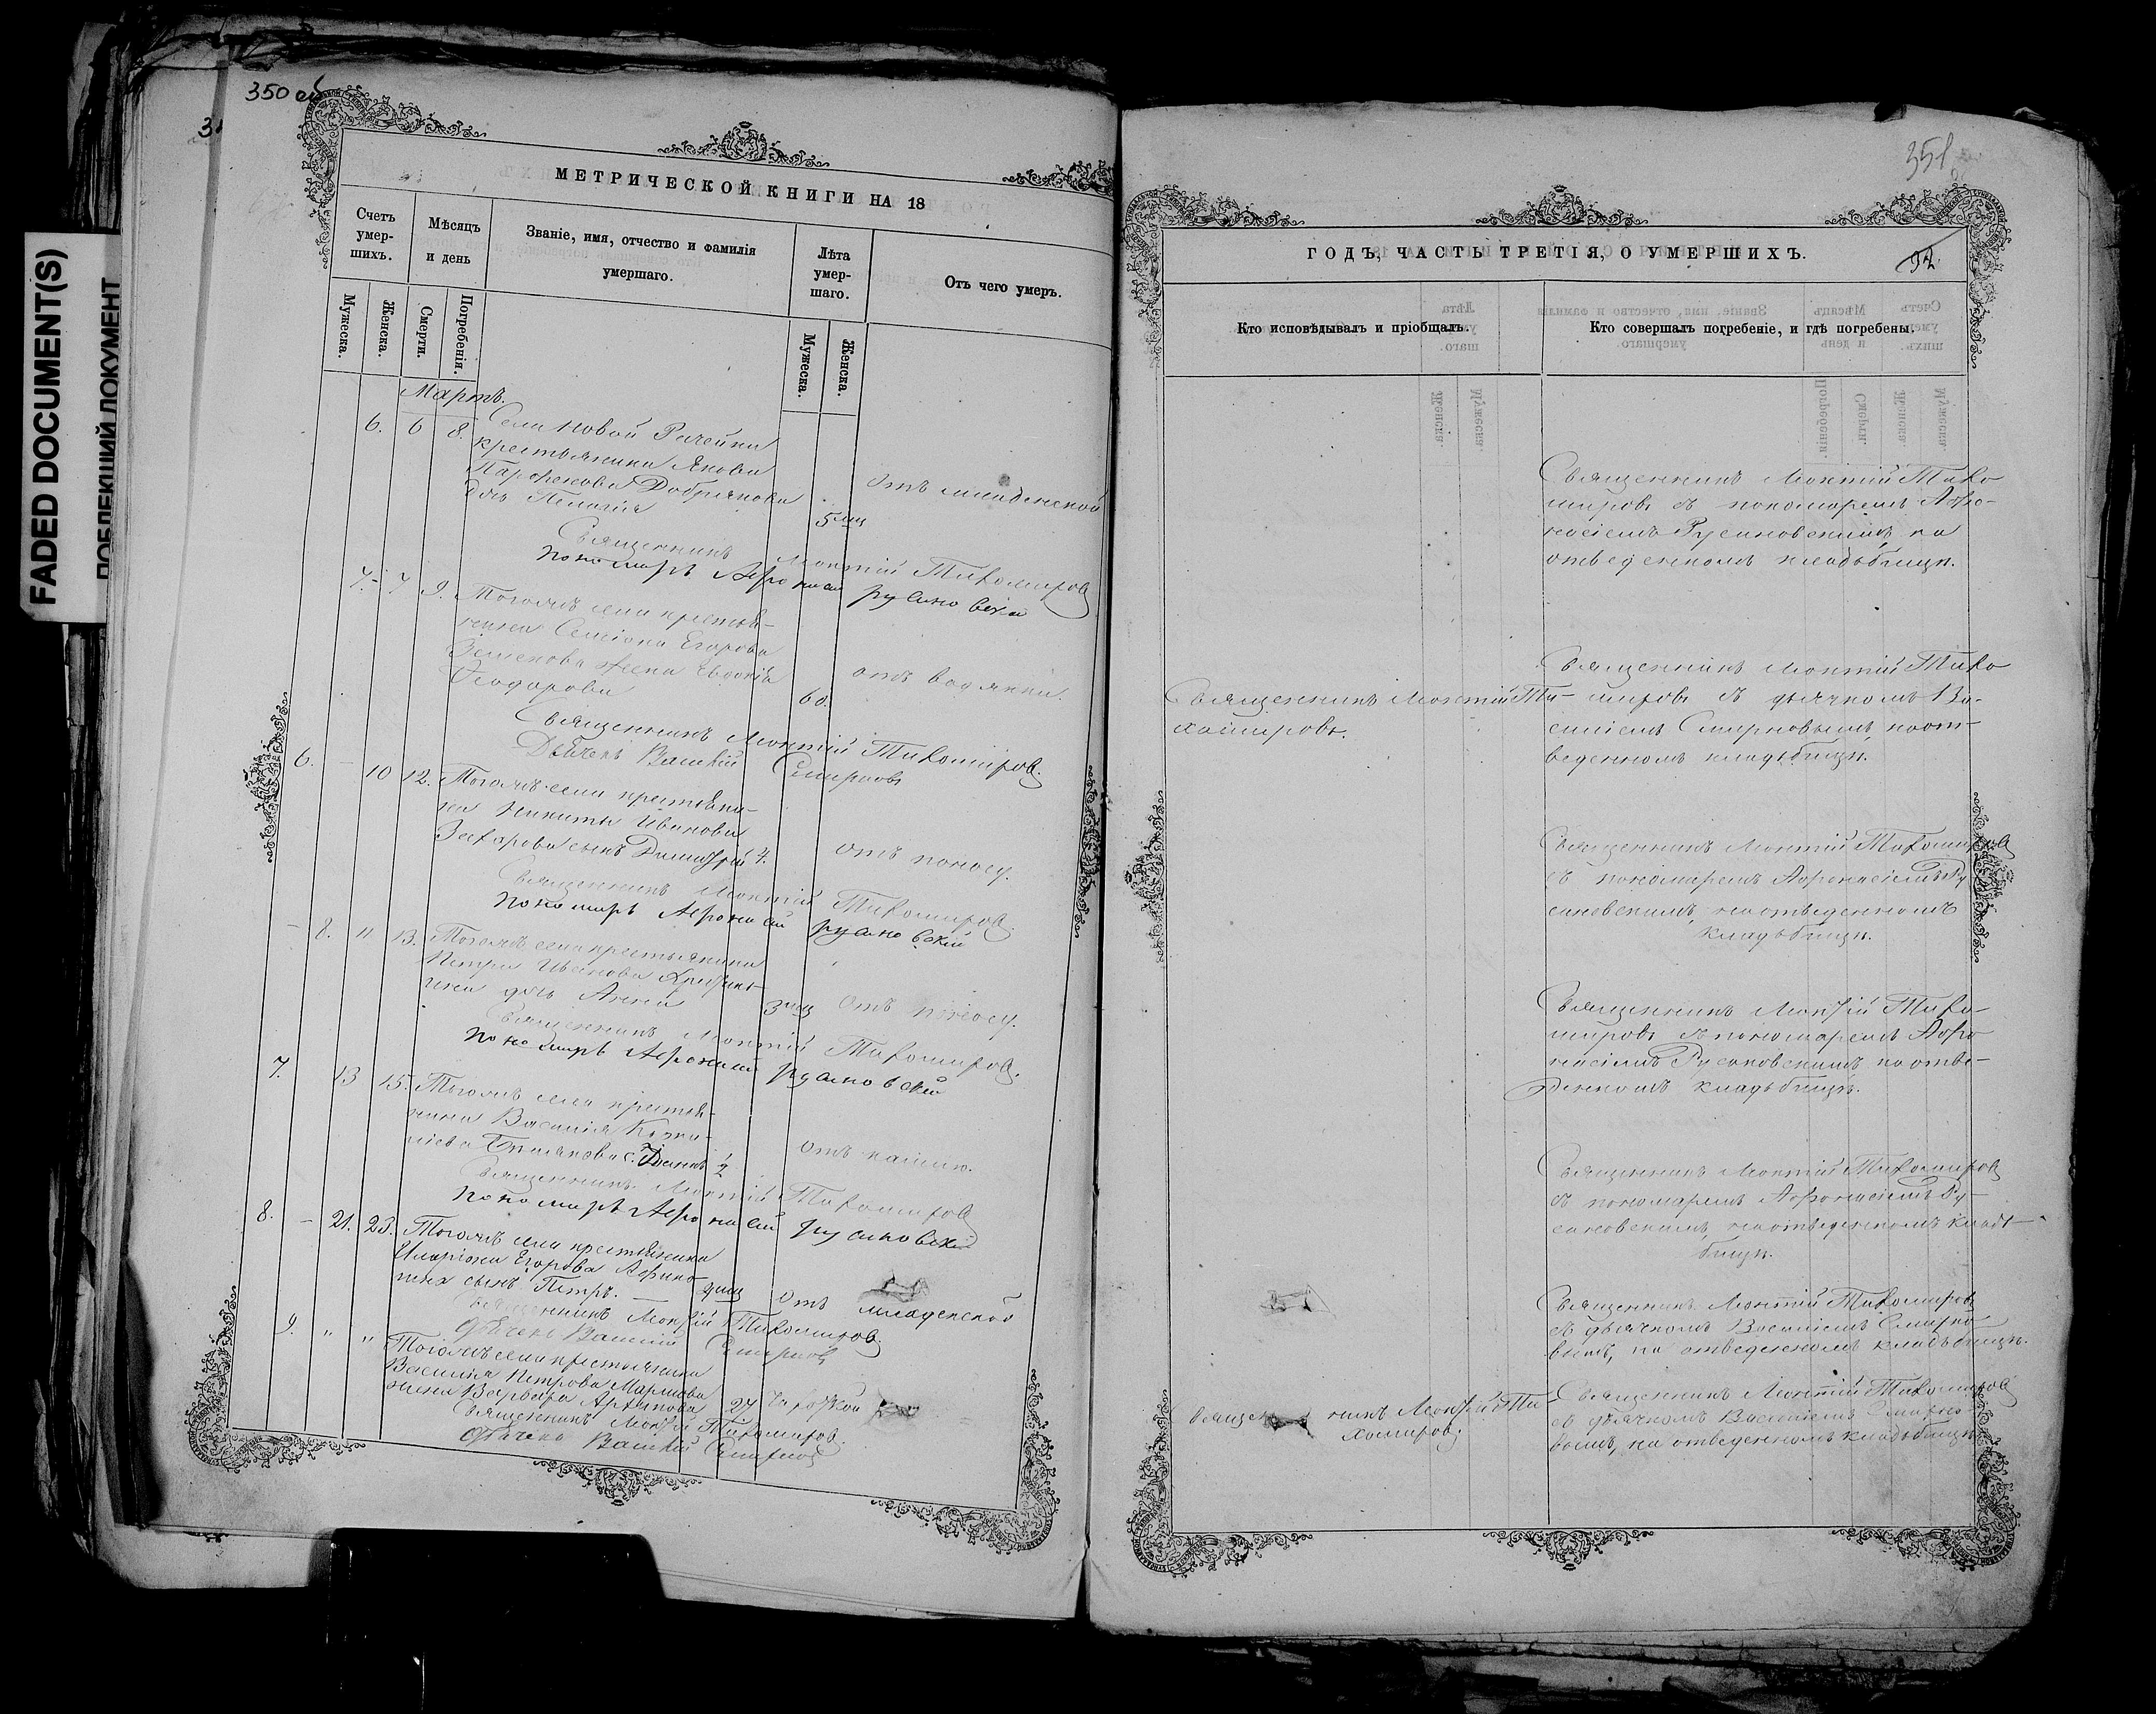 350 об
FADED DOCUMENT(S)
ПОБЛЕКШИЙ ДОКУМЕНТ
МЕТРИЧЕСКОЙ КНИГИ НА 18
Счетъ умер- шихъ.
Мѣсяцъ и день
Званіе, имя, отчество и фамилія умершаго.
Лѣта умер- шаго.
Отъ чего умеръ.
Мужеска.
Женска.
Смерти.
Погребенія.
Мужеска.
Женска.
Мартъ.
6. 6 8. Села Новой Рачейки
крестьянина Якова
Парфенова Добрячкова
дочь Пелагія
5 мц
отъ младенской
Священникъ Моктій Тихомировъ
пономарь Афонасій Русановскій
7. 7 9. Тогожъ села крестья-
нина Семіона Егорова
жена Евдокія
Феодорова
60.
отъ водянки.
Священникъ Моктій Тихомировъ.
Дьячекъ Василій Смирновъ
6. – 10 12. Тогожъ села крестьяни-
на Никиты Иванова
Захарова сынъ Димитрій 4.
отъ поносу.
Священникъ Моктій Тихомировъ.
пономарь Афонасій Русановскій
– 8. 11 13. Тогожъ села крестьянина
Петра Иванова
дочь Анна
3 мц
отъ поносу.
Священникъ Моктій Тихомировъ.
пономарь Афонасій Русановскій
7. 13 15. Тогожъ села крестья-
нина Василія
1/2
отъ кашлю.
Священникъ Моктій Тихомировъ
пономарь Афонасій Русановскій
8. – 21. 23. Тогожъ села крестьянина
Иларіона Егорова Афино-
гина сынъ Петръ. —
отъ младенской
Священникъ Моктій Тихомировъ.
Дьячекъ Василій Смирновъ
9. " " Тогожъ села крестьянина
Василія Петрова
жена Варвара
27
Священникъ Моктій Тихомировъ.
Дьячекъ Василій Смирновъ
351
ГОДЪ, ЧАСТЬ ТРЕТІЯ, О УМЕРШИХЪ.
92.
Кто исповѣдывалъ и пріобщалъ.
Кто совершалъ погребеніе, и гдѣ погребены.
Священникъ Моктій Тихо-
мировъ съ пономаремъ Афо-
насіемъ Русановскимъ на
отведенномъ кладбищѣ.
Священникъ Моктій Ти-
хомировъ.
Священникъ Моктій Тихо-
мировъ съ дьячкомъ Ва-
силіемъ Смирновымъ на от-
веденномъ кладьбищѣ.
Священникъ Моктій Тихомировъ
съ пономаремъ Афонасіемъ Ру-
сановскимъ, на отведенномъ
кладьбищѣ.
Священникъ Моктій Тихо-
мировъ съ пономаремъ Афо
насіемъ Русановскимъ на отве-
денномъ кладьбищѣ.
Священникъ Моктій Тихомировъ
съ пономаремъ Афонасіемъ Ру-
сановскимъ, на отведенномъ кладь-
бищѣ.
Священникъ Моктій Тихомировъ
съ дьячкомъ Василіемъ Смирно-
вымъ, на отведенномъ кладьбищѣ.
Священникъ Моктій Ти-
хомировъ.
Священникъ Моктій Тихомировъ
съ дьячкомъ Василіемъ Смирно-
вымъ, на отведенномъ кладьбищѣ.